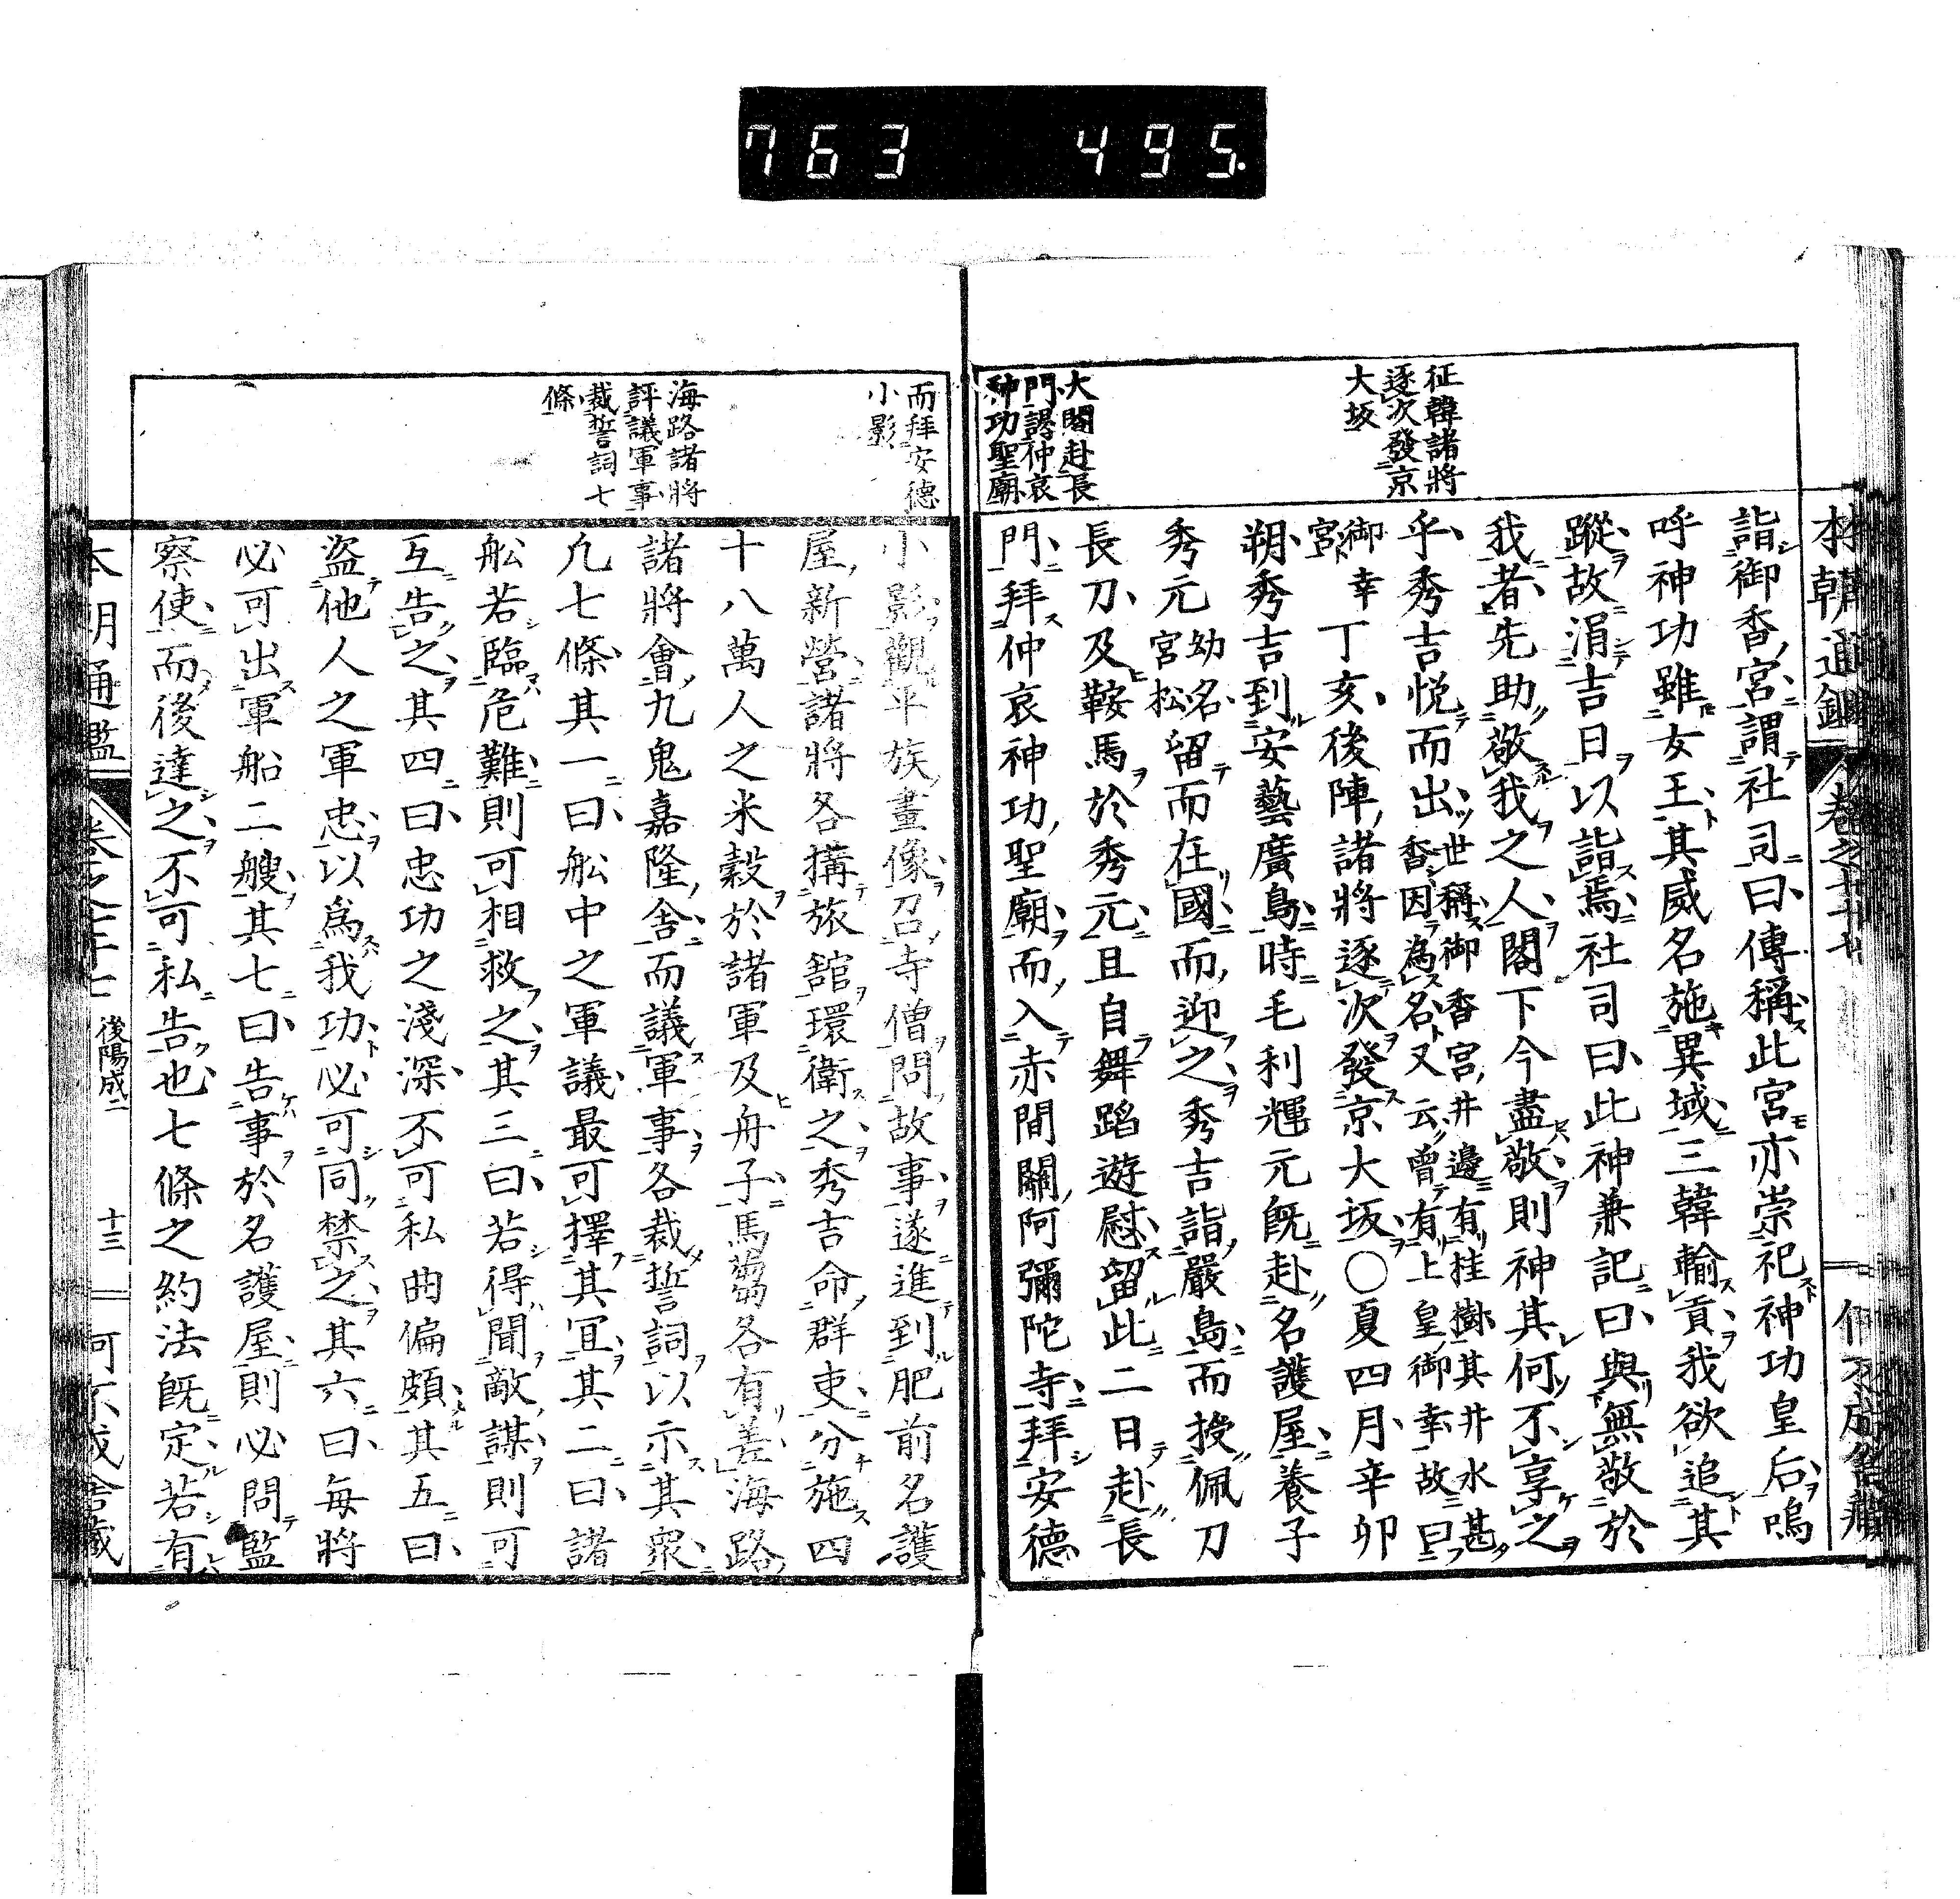 763 495.
征韓諸將
逐次發京
大坂
大閤赴長
門謁仲哀
神功聖廟
詣御香宮謂社司曰傳稱此宮亦崇祀神功皇后嗚
呼神功雖女王其威名施異域三韓輸貢我欲追其
蹤故涓吉日以詣焉社司曰此神兼記曰與無敬於
我者先助敬我之人閤下今盡敬則神其何不享之
乎秀吉悅而出世稱御香宮井邊有桂樹其井水甚
香因為名又云曾有上皇御幸故曰
御幸
宮丁亥後陣諸將逐次發京大坂○夏四月辛卯
朔秀吉到安藝廣島時毛利輝元既赴名護屋養子
秀元幼名
宮松留而在國而迎之秀吉詣嚴島而授佩刀
長刀及鞍馬於秀元且自舞蹈遊慰留此二日赴長
門拜仲哀神功聖廟而入赤間關阿彌陀寺拜安德
而拜安德
小影
海路諸將
評議軍事
裁誓詞七
條
小影觀平族畫像召寺僧問故事遂進到肥前名護
屋新營諸將各搆旅舘環衛之秀吉命群吏分施四
十八萬人之米穀於諸軍及舟子馬芻各有差海路
諸將會九鬼嘉隆舍而議軍事各裁誓詞以示其衆
凢七條其一曰舩中之軍議最可擇其宜其二曰諸
舩若臨危難則可相救之其三曰若得聞敵謀則可
互告之其四曰忠功之淺深不可私曲偏頗其五曰
盜他人之軍忠以爲我功必可同禁之其六曰每將
必可出軍船二艘其七曰告事於名護屋則必問監
察使而後達之不可私告也七條之約法既定若有
本朝通鑑
後陽成二
十三